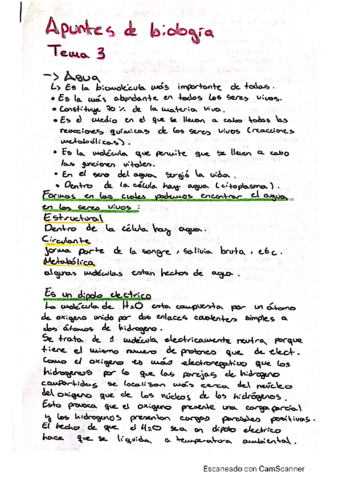 Apuntes de biología
Tema 3
-> Agua
↳ Es la biomolécula más importante de todas.
• Es la más abundante en todos los seres vivos.
• Constituye 70% de la materia viva.
• Es el medio en el que se llevan a cabo todas las
reacciones químicas de los seres vivos (reacciones
metabólicas).
• Es la molécula que permite que se lleven a cabo
las funciones vitales.
• En el seno del agua surgió la vida.
• Dentro de la célula hay agua (citoplasma).
Formas en las cuales podemos encontrar el agua
en los seres vivos:
Estructural
Dentro de la célula hay agua.
Circulante
forma parte de la sangre, salivia bruta, etc.
Metabólica
algunas moléculas estan hechas de agua.
Es un dipolo electrico
La molécula de H2O esta compuesta por un átomo
de oxigeno unido por dos enlaces covalentes simples a
dos átomos de hidrogeno.
Se trata de 1 molécula electricamente neutra, porque
tiene el mismo numero de protones que de elect.
Como el oxigeno es más electronegativo que los
hidrogenos por lo que las parejas de hidrogeno
compartidas se localizan más cerca del núcleo
del oxigeno que de los núcleos de los hidrógenos.
Esto provoca que el oxigeno presente una carga parcial
y los hidrogenos presentan cargas parciales positivas.
El hecho de que el H2O sea un dipolo electrico
hace que sea líquida a temperatura ambiental.
Escaneado con CamScanner